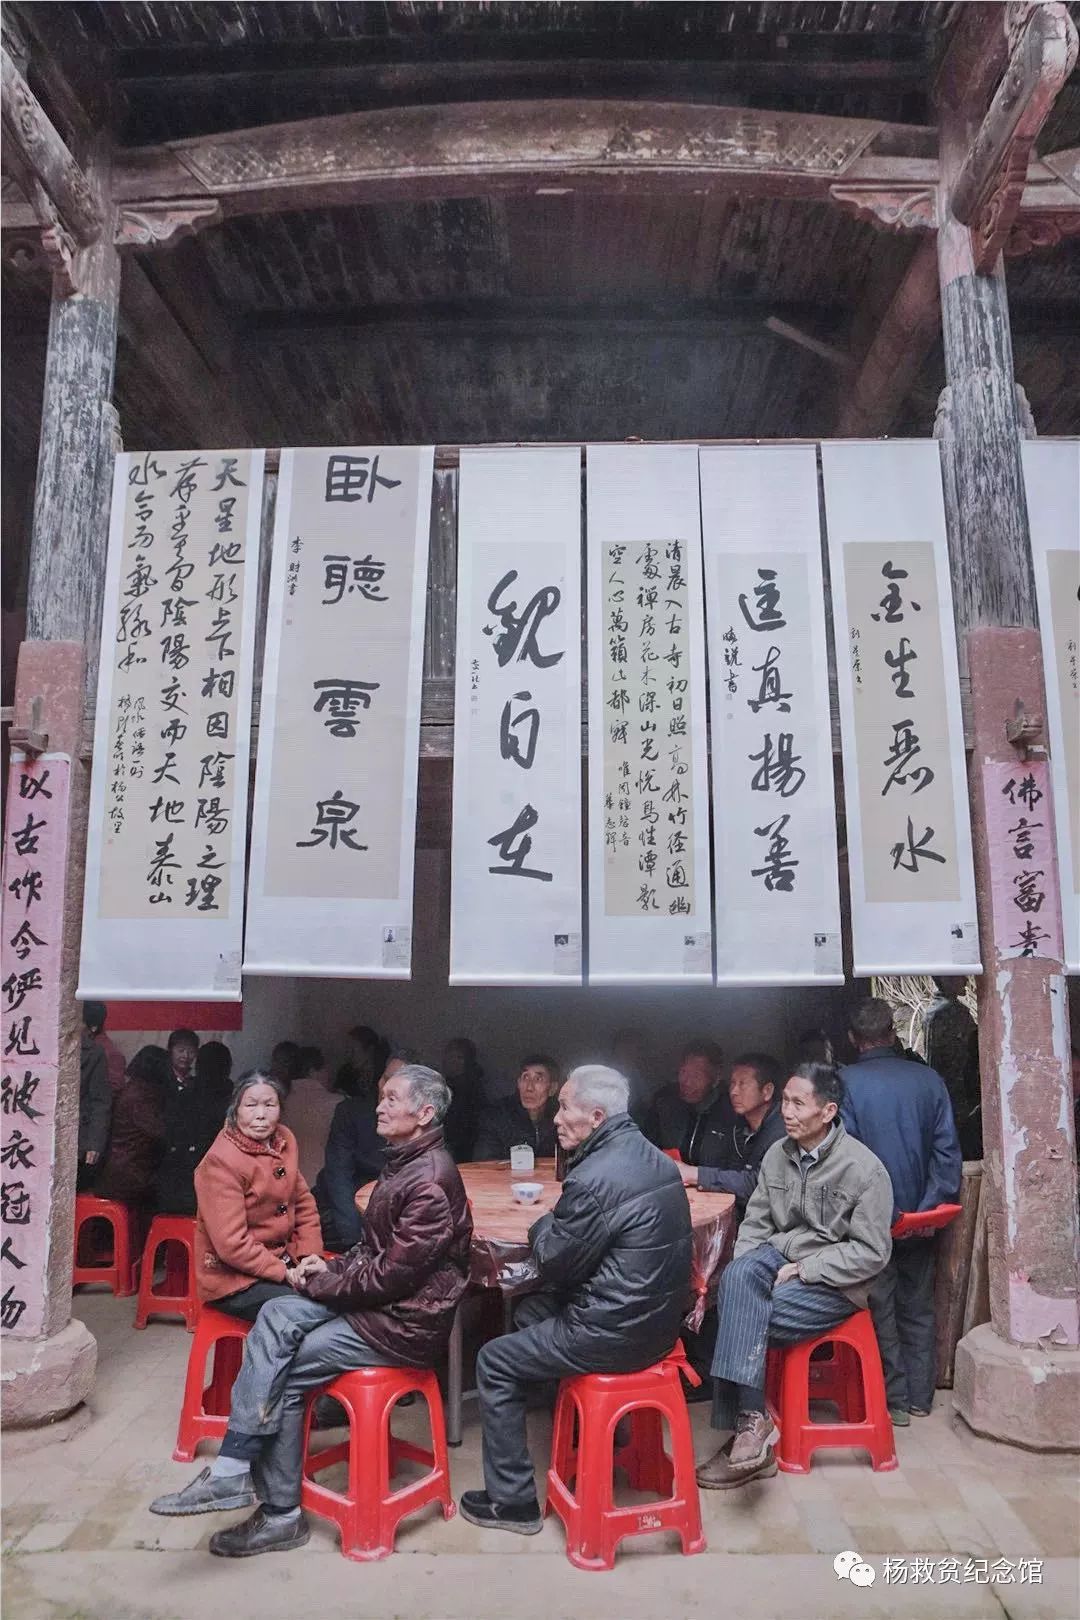 天星地形上下相因陰陽之理
陰陽交而天地泰山
水合而氣脉和
卧聽雲泉
李財洪書
觀自在
清晨入古寺初日照高林竹径通幽
處禅房花木深山光悦鳥性潭影
空人心萬籟山都寂
唯闻鐘磬音
匡真揚善
金生丽水
以古作今俨见彼衣冠人物
佛言富贵
杨救贫纪念馆